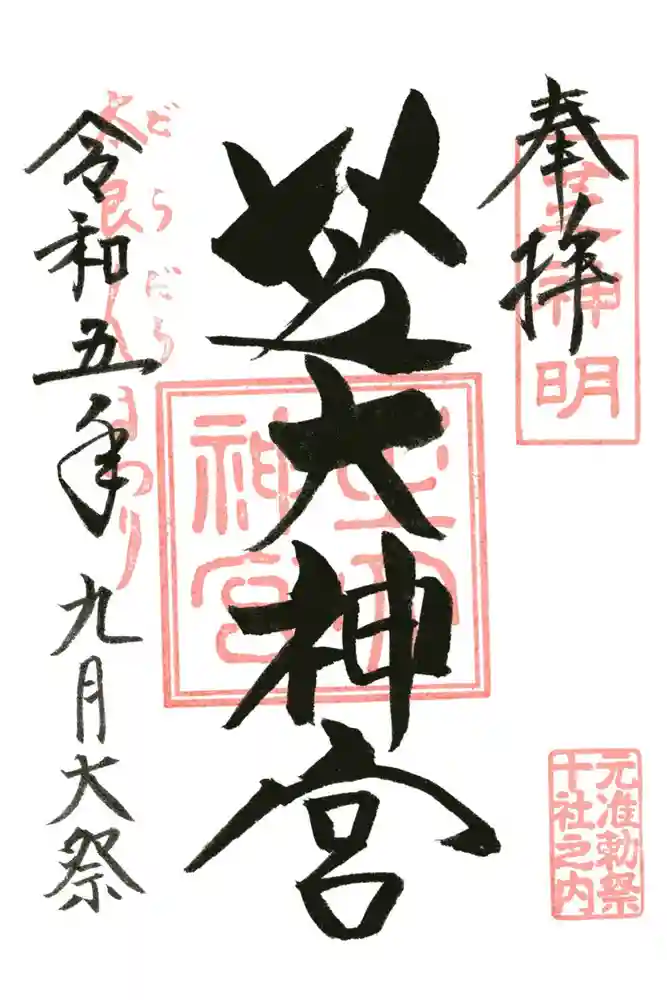 奉拝
芝神明
元准勅祭
十社之内
芝大神宮
芝大
神宮
令和五年 九月大祭
だらだら
まつり